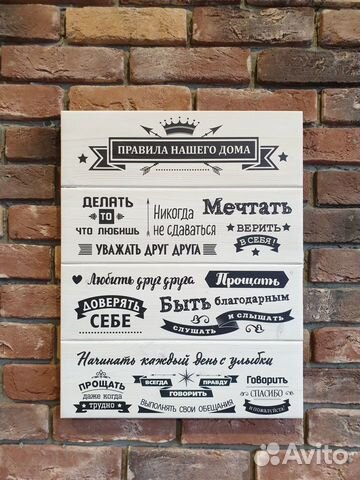 ПРАВИЛА НАШЕГО ДОМА
ДЕЛАТЬ
ТО
ЧТО ЛЮБИШЬ
Никогда
не сдаваться
Мечтать
ВЕРИТЬ
В СЕБЯ!
УВАЖАТЬ ДРУГ ДРУГА
Любить друг друга
Прощать
ДОВЕРЯТЬ
СЕБЕ
БЫТЬ благодарным
СЛУШАТЬ И СЛЫШАТЬ
Начинать каждый день с улыбки
ПРОЩАТЬ
даже когда
ТРУДНО
ВСЕГДА ПРАВДУ
ГОВОРИТЬ
ВЫПОЛНЯТЬ СВОИ ОБЕЩАНИЯ
Говорить
СПАСИБО
И ПОЖАЛУЙСТА
Avito